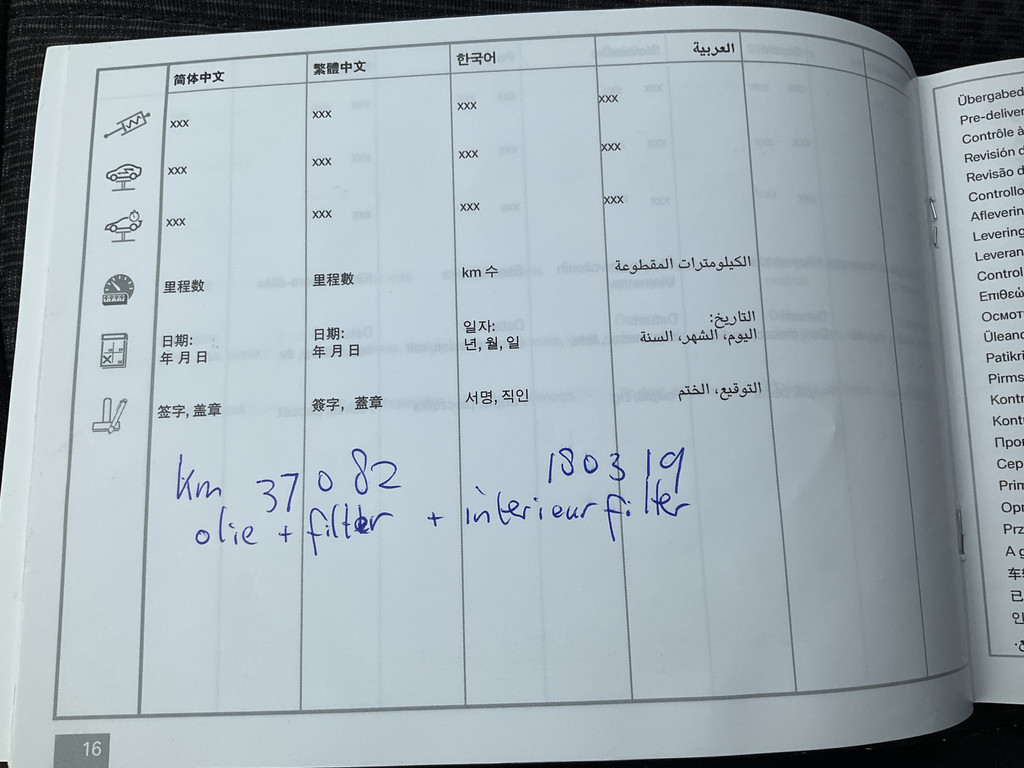 简体中文 繁體中文 한국어 العربية
xxx xxx xxx xxx
xxx xxx xxx xxx
xxx xxx xxx xxx
里程数 里程數 km 수 الكيلومترات المقطوعة
日期: 日期: 일자: التاريخ:
年 月 日 年 月 日 년, 월, 일 اليوم، الشهر، السنة
签字, 盖章 簽字, 蓋章 서명, 직인 التوقيع، الختم
km 37 082 180319
olie + filter + interieurfilter
16
Übergabed
Pre-deliver
Contrôle à
Revisión d
Revisão d
Controllo
Aflevering
Levering
Leveran
Control
Επιθεώ
Осмот
Ülean
Patikri
Pirms
Kontr
Kont
Про
Сер
Prim
Opr
Prz
A g
车
已